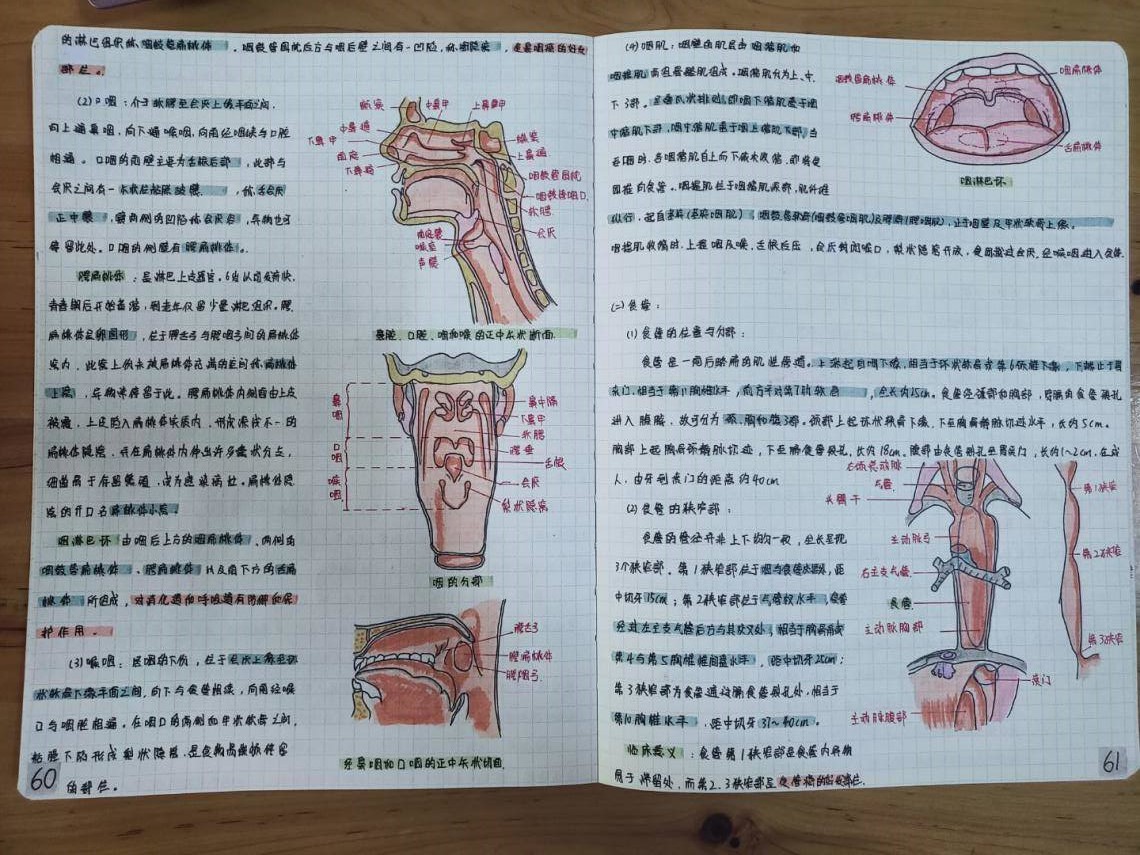 的淋巴组织称咽鼓管扁桃体，咽鼓管圆枕后方与咽后壁之间有一凹陷，称咽隐窝，是鼻咽癌的好发
部位。
(2)口咽：介于软腭至会厌上缘平面之间，
向上通鼻咽，向下通喉咽，向前经咽峡与口腔
相通。口咽的前壁主要为舌根后部，此部与
会厌之间有一矢状位粘膜皱襞，称舌会厌
正中襞，襞两侧的凹陷称会厌谷，异物也可
停留此处。口咽的侧壁有腭扁桃体。
腭扁桃体：是淋巴上皮器官。6岁以前发育快，
青春期后开始萎缩，到老年仅留少量淋巴组织。腭
扁桃体呈卵圆形，位于腭舌弓与腭咽弓间的扁桃体
窝内，此窝上份未被扁桃体充满的空间称扁桃体
上窝，异物常停留于此。腭扁桃体内侧面由上皮
被覆，上皮陷入扁桃体实质内，形成深浅不一的
扁桃体隐窝，并在扁桃体内伸出许多囊状分支，
细菌易于存留繁殖，成为感染病灶。扁桃体隐
窝的开口名扁桃体小窝。
咽淋巴环 由咽后上方的咽扁桃体、两侧的
咽鼓管扁桃体、腭扁桃体以及前下方的舌扁
桃体所组成，对消化道和呼吸道有防御和保
护作用。
(3)喉咽：是咽的下份，位于会厌上缘至环
状软骨下缘平面之间，向下与食管相续，向前经喉
口与喉腔相通。在咽口的两侧和甲状软骨之间，
粘膜下陷形成梨状隐窝，是食物易滞留停留
的部位。
60
额窦
中鼻甲
上鼻甲
中鼻道
下鼻甲
下鼻道
蝶窦
上鼻道
咽鼓管圆枕
咽鼓管咽口
软腭
会厌
前庭襞
喉室
声襞
鼻腔、口腔、咽和喉的正中矢状断面
鼻咽
口咽
喉咽
鼻中隔
下鼻甲
软腭
腭垂
舌根
会厌
梨状隐窝
咽的分部
腭舌弓
腭扁桃体
腭咽弓
示鼻咽和口咽的正中矢状切面
(4)咽肌：咽壁的肌层由咽缩肌和
咽提肌两组骨骼肌组成。咽缩肌分为上、中、
下3部，呈叠瓦状排列，即咽下缩肌叠于咽
中缩肌下部，咽中缩肌叠于咽上缩肌下部，当
吞咽时，各咽缩肌自上而下依次收缩，即将食
团推向食管。咽提肌位于咽缩肌深部，肌纤维
纵行，起自茎突(茎突咽肌)、咽鼓管软骨(咽鼓管咽肌)及腭骨(腭咽肌)，止于咽壁及甲状软骨上缘。
咽提肌收缩时，上提咽及喉，舌根后压，会厌封闭喉口，梨状隐窝开放，食团越过会厌，经喉咽进入食管。
咽鼓管扁桃体
腭扁桃体
咽扁桃体
舌扁桃体
咽淋巴环
(二)食管：
(1)食管的位置与分部：
食管是一前后略扁的肌性管道。上端起自咽下缘，相当于环状软骨或第6颈椎下缘，下端止于胃
贲门，相当于第11胸椎水平，前方平对第7肋软骨，全长约25cm。食管经颈部和胸部，穿膈的食管裂孔
进入腹腔，故可分为颈、胸和腹3部。颈部上起环状软骨下缘，下至胸骨颈静脉切迹水平，长约5cm。
胸部上起胸骨颈静脉切迹，下至膈食管裂孔，长约18cm。腹部由食管裂孔至胃贲门，长约1~2cm，在成
人，由牙到贲门的距离约40cm
(2)食管的狭窄部：
食管的管径并非上下均匀一致，全长呈现
3个狭窄部。第1狭窄部位于咽与食管交界处，距
中切牙15cm；第2狭窄部位于气管杈水平，食管
经过左主支气管后方与其交叉处，相当于胸骨角或
第4与第5胸椎椎间盘水平，距中切牙25cm；
第3狭窄部为食管通过膈食管裂孔处，相当于
第10胸椎水平，距中切牙37~40cm。
临床意义：食管第1狭窄部是食管内异物
易于滞留处，而第2、3狭窄部是食管癌的好发部位。
右颈总动脉
气管
头臂干
主动脉弓
右主支气管
食管
主动脉胸部
主动脉腹部
贲门
第1狭窄
第2狭窄
第3狭窄
61